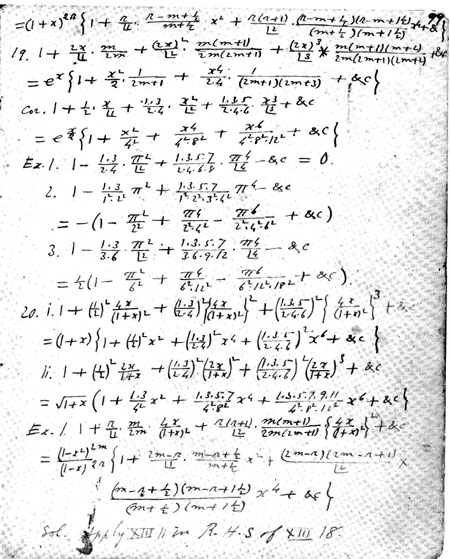 99
= (1+x)^{2n} {1 + n/⌊1 · (n-m+½)/(m+½) x² + n(n+1)/⌊2 · (n-m+½)(n-m+1½)/((m+½)(m+1½)) x⁴ + &c}
19. 1 + 2x/⌊1 · m/2m + (2x)²/⌊2 · m(m+1)/(2m(2m+1)) + (2x)³/⌊3 × m(m+1)(m+2)/(2m(2m+1)(2m+2)) + &c
= e^x {1 + x²/2 · 1/(2m+1) + x⁴/2·4 · 1/((2m+1)(2m+3)) + &c}
Cor. 1 + ½ · x/⌊1 + 1·3/2·4 · x²/⌊2 + 1·3·5/2·4·6 · x³/⌊3 + &c
= e^{x/2} {1 + x²/4² + x⁴/4²·8² + x⁶/4²·8²·12² + &c}
Ex. 1. 1 - 1·3/2·4 · π²/⌊2 + 1·3·5·7/2·4·6·8 · π⁴/⌊4 - &c = 0.
2. 1 - 1·3/1²·2² π² + 1·3·5·7/1²·2²·3²·4² π⁴ - &c
= -(1 - π²/2² + π⁴/2²·4² - π⁶/2²·4²·6² + &c)
3. 1 - 1·3/3·6 · π²/⌊2 + 1·3·5·7/3·6·9·12 · π⁴/⌊4 - &c
= ½(1 - π²/6² + π⁴/6²·12² - π⁶/6²·12²·18² + &c).
20. i. 1 + (½)² 4x/(1+x)² + (1·3/2·4)² {4x/(1+x)²}² + (1·3·5/2·4·6)² {4x/(1+x)²}³ + &c
= (1+x) {1 + (½)² x² + (1·3/2·4)² x⁴ + (1·3·5/2·4·6)² x⁶ + &c}
ii. 1 + (½)² 2x/(1+x) + (1·3/2·4)² (2x/(1+x))² + (1·3·5/2·4·6)² (2x/(1+x))³ + &c
= √(1+x) (1 + 1·3/4² x² + 1·3·5·7/4²·8² x⁴ + 1·3·5·7·9·11/4²·8²·12² x⁶ + &c}
Ex. 1. 1 + n/⌊1 · m/2m · 4x/(1+x)² + n(n+1)/⌊2 · m(m+1)/(2m(2m+1)) {4x/(1+x)²}² + &c
= (1-x²)^{2m}/(1-x)^{2n} {1 + (2m-n)/⌊1 · (m-n+½)/(m+½) x² + (2m-n)(2m-n+1)/⌊2 ×
(m-n+½)(m-n+1½)/((m+½)(m+1½)) x⁴ + &c}
Sol. Apply XIII 11 in R.H.S of XIII 18.